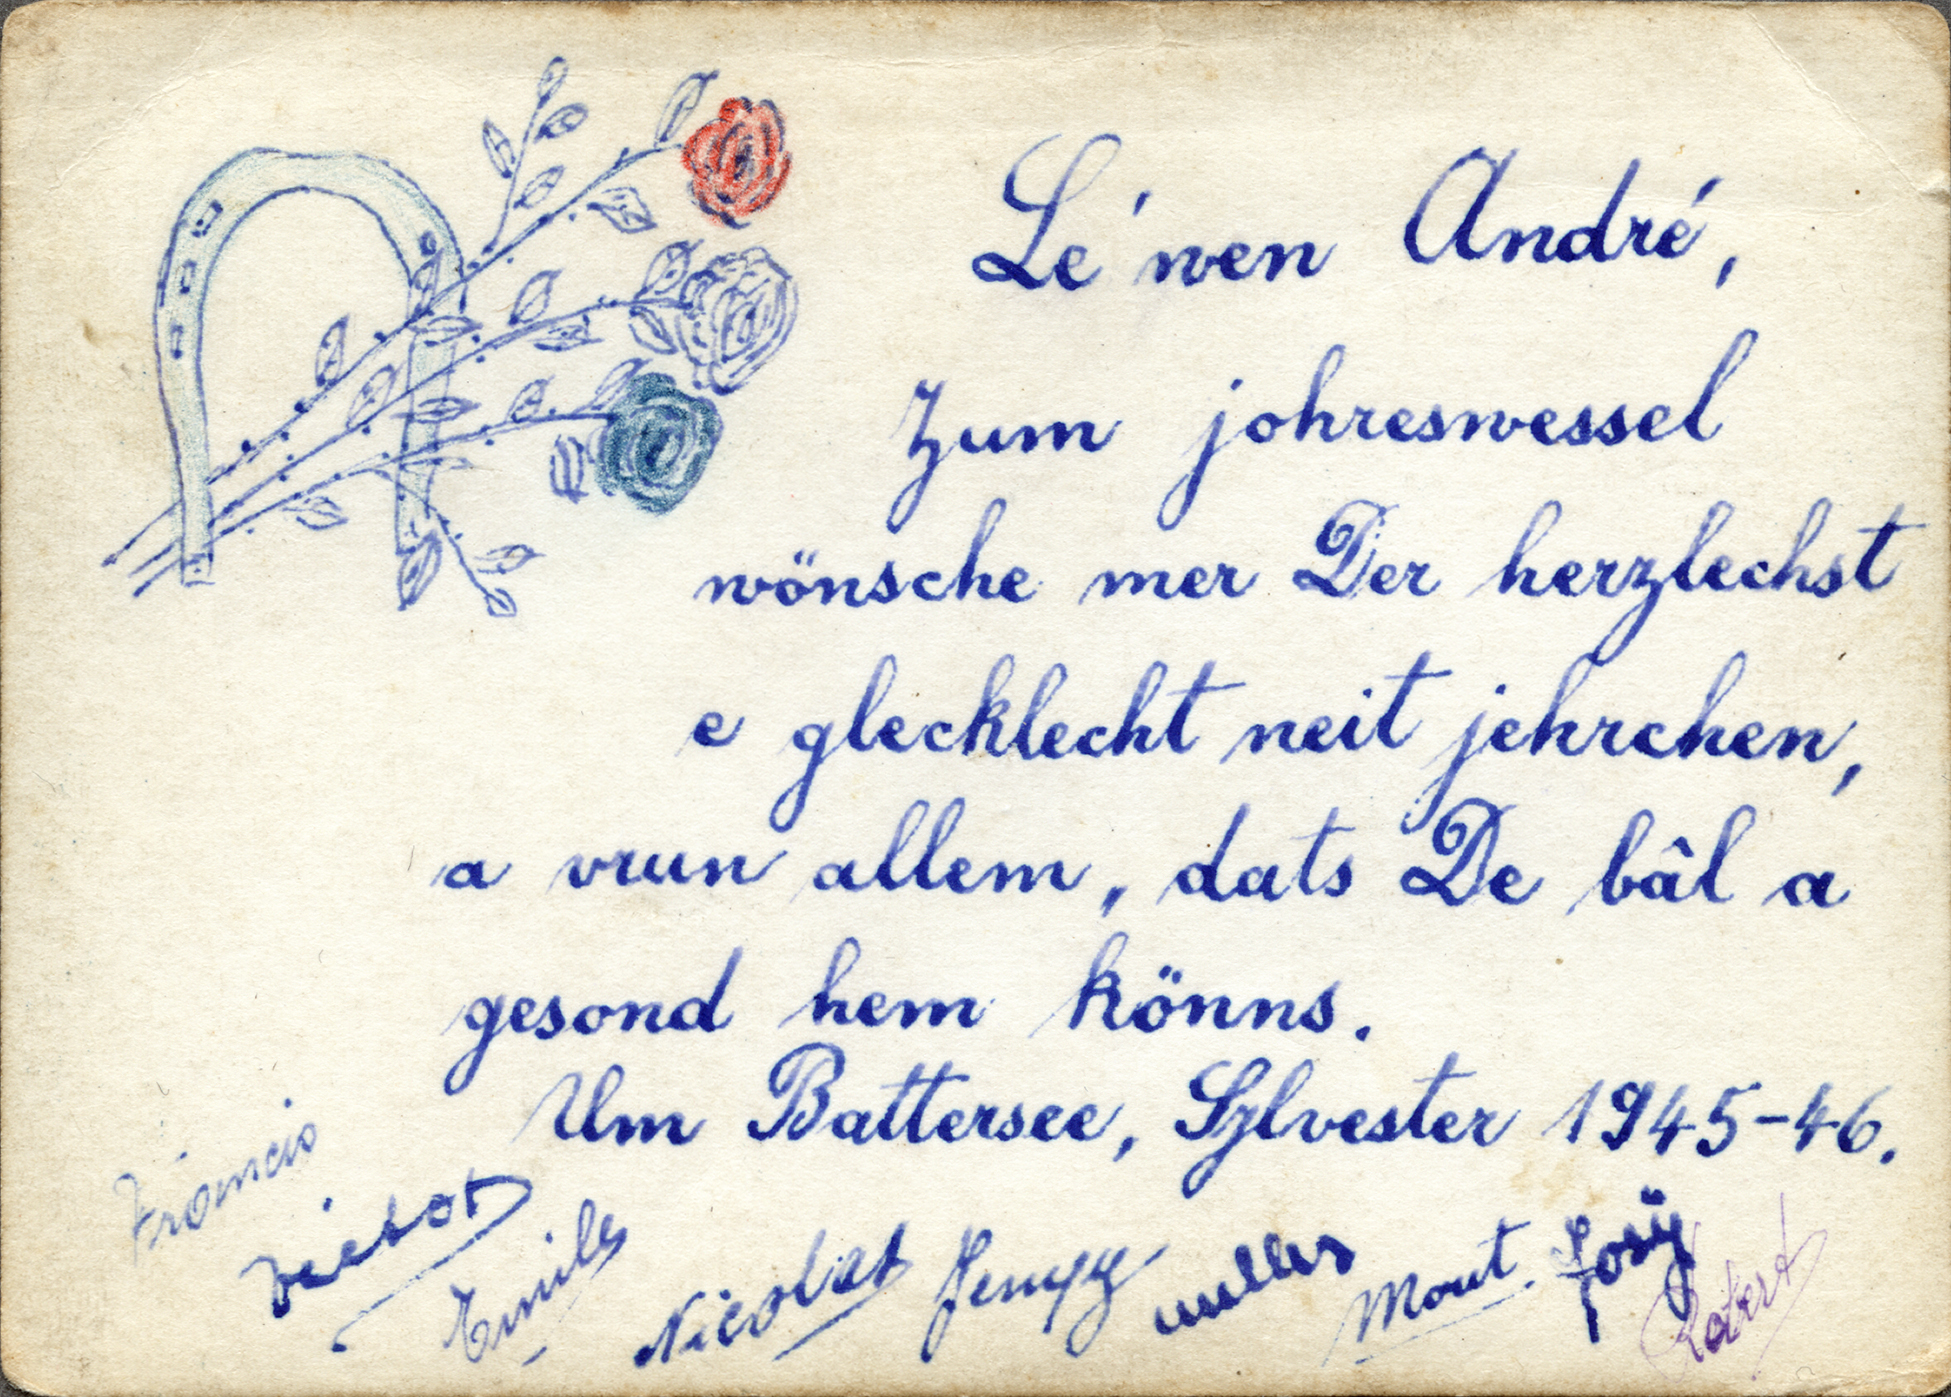 Le'wen André,
Zum johreswessel
wönsche mer Der herzlechst
e glecklecht neit jehrchen,
a vrun allem, dats De bâl a
gesond hem könns.
Um Battersee, Sylvester 1945-46.
Francis Victor Emile Nicolas Jempy Mout. Josÿ Robert